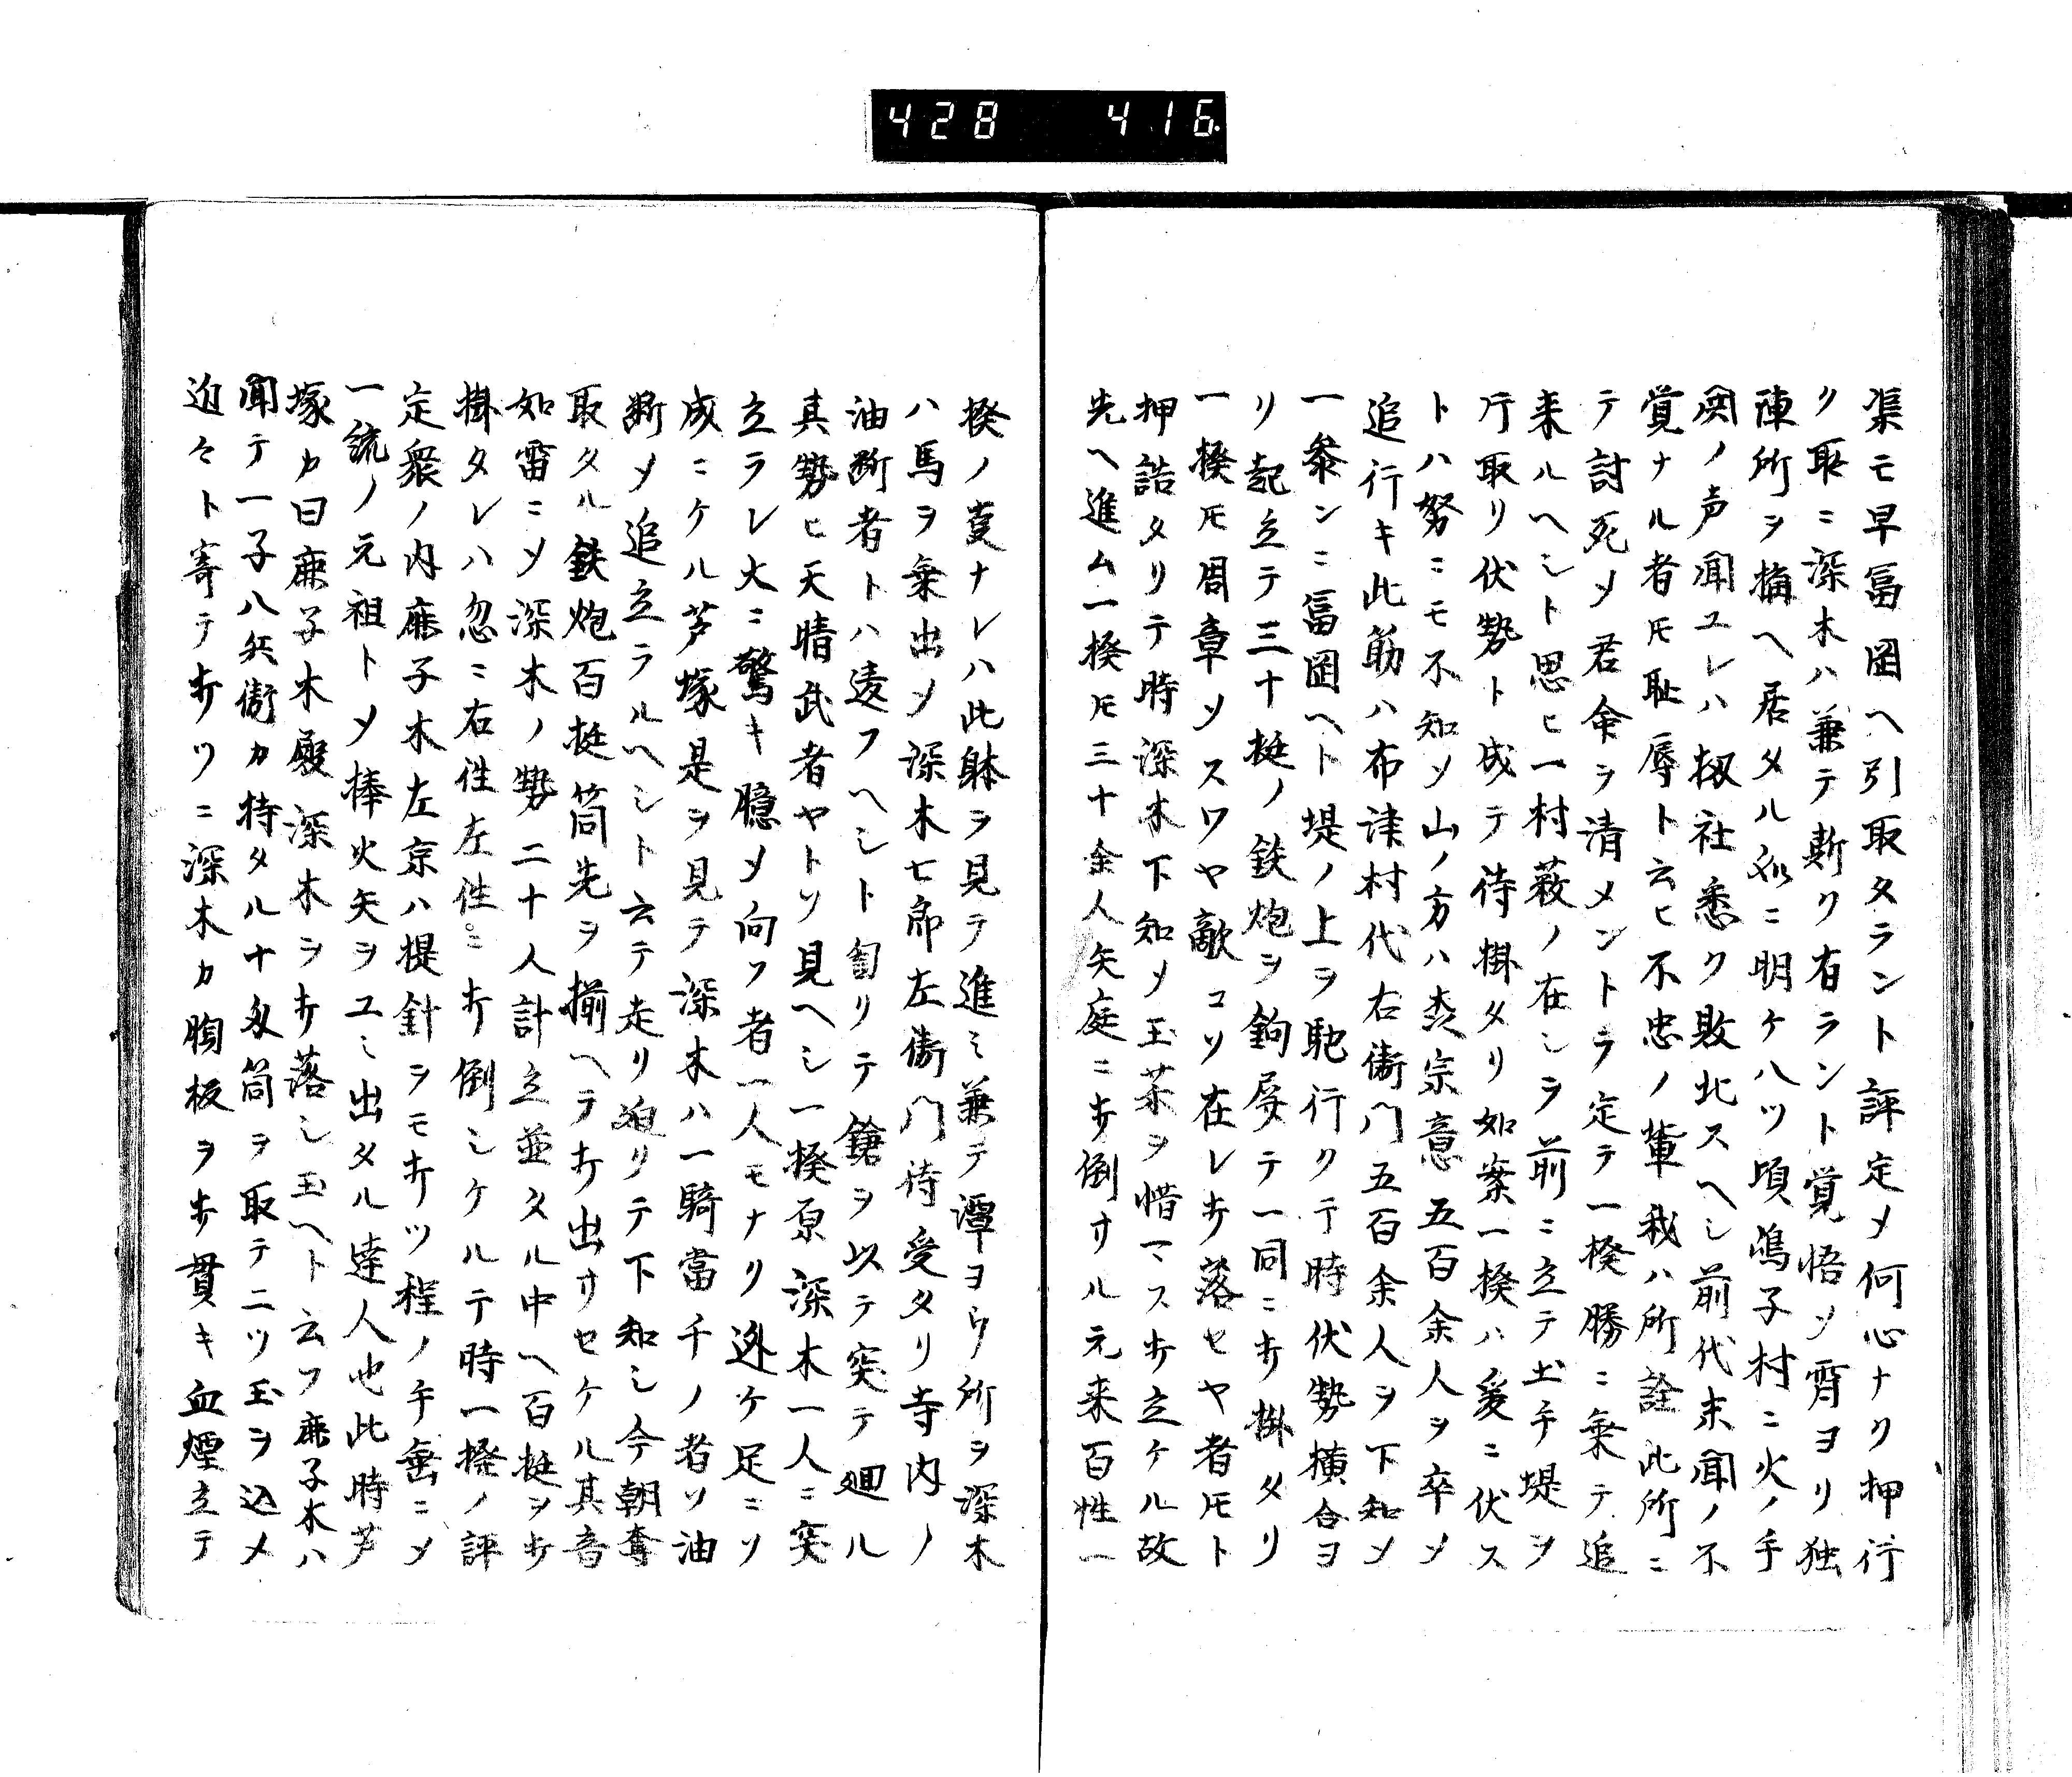 428 416
渠モ早冨岡ヘ引取タラント評定メ何心ナク押行
ク取ニ深木ハ兼テ斯ク有ラント覚悟メ宵ヨリ独
陳所ヲ構ヘ居タル処ニ明ケ八ツ頃嶋子村ニ火ノ手
関ノ声聞ユレハ扨社悉ク敗北スヘシ前代末聞ノ不
覚ナル者モ恥辱ト云ヒ不忠ノ輩我ハ所詮此所ニ
テ討死メ君命ヲ清メントラ定テ一揆勝ニ乗テ追
来ルヘシト思ヒ一村薮ノ在シヲ前ニ立テ土手堤ヲ
片取リ伏勢ト成テ待掛タリ如案一揆ハ爰ニ伏ス
トハ努ニモ不知ソ山ノ方ハ宗意五百余人ヲ卒メ
追行キ此筋ハ布津村代右衛門五百余人ヲ下知メ
一参ンニ冨岡ヘト堤ノ上ヲ馳行クテ時伏勢横合ヨ
リ起立テ三十挺ノ鉄炮ヲ釣屏テ一同ニ打掛タリ
一揆モ周章ソスワヤ敵コソ在レ打落セヤ者モト
押詰タリテ時深木下知メ玉茶ヲ惜マス打立ケル故
先ヘ進ム一揆モ三十余人矢庭ニ打倒サル元来百性一
揆ノ㕝ナレハ此躰ヲ見テ進ミ兼テ漂ヨウ所ヲ深木
ハ馬ヲ乗出メ深木七郎左衛門待受タリ寺内ノ
油断者トハ違フヘシト匐リテ鎗ヲ以テ突テ廻ル
其勢ヒ天晴武者ヤトソ見ヘシ一揆原深木一人ニ突
立ラレ大ニ驚キ臆メ向フ者一人モナリ迯ケ足ニソ
成ニケル芦塚是ヲ見テ深木ハ一騎當千ノ者ソ油
断メ追立ラルヘシト云テ走リ廻リテ下知シ今朝奪
取タル鉄炮百挺筒先ヲ揃ヘテ打出サセケル其音
如雷ニソ深木ノ勢二十人計立並タル中ヘ百挺ヲ打
掛タレハ忽ニ右性左性ニ打倒シケルテ時一揆ノ評
定衆ノ内鹿子木左京ハ提針ヲモ打ツ程ノ手垂ニメ
一統ノ元祖トメ棒火矢ヲユミ出タル達人也此時芦
塚カ曰鹿子木殿深木ヲ打落シ玉ヘト云フ鹿子木ハ
聞テ一子八兵衛カ持タル十匁筒ヲ取テ二ツ玉ヲ込メ
近々ト寄テ打ツニ深木カ胸板ヲ打貫キ血煙立テ